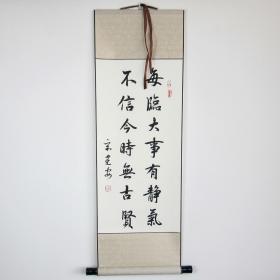 每臨大事有静氣
不信今時無古賢